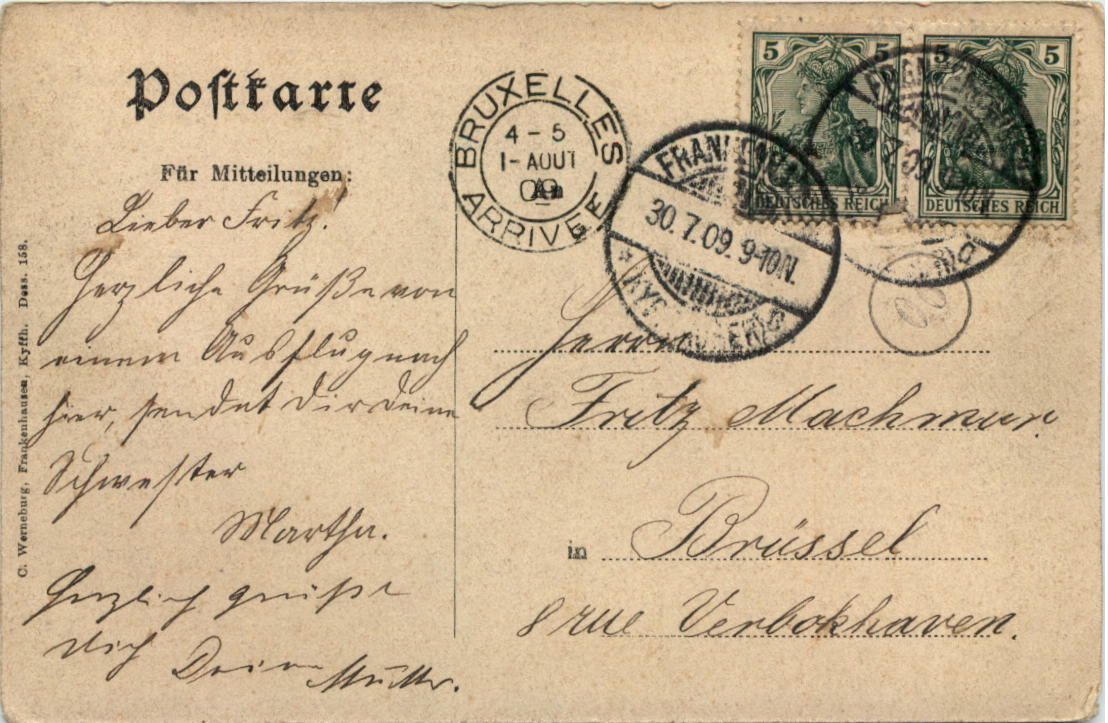 Postkarte
Für Mitteilungen:
Lieber Fritz!
Herzliche Grüße von
einem Ausflug nach
hier, sendet Dir Deine
Schwester
Martha.
Herzlich grüßt
Dich Deine Mutter.
C. Werneburg, Frankenhausen, Kyffh. Dess. 158.
BRUXELLES
4-5
1-AOUT
09
ARRIVEE
30.7.09. 9-10N.
5 5
DEUTSCHES REICH
5 5
DEUTSCHES REICH
Herrn
Fritz Machmur
in Brüssel
8 rue Verbokhaven.